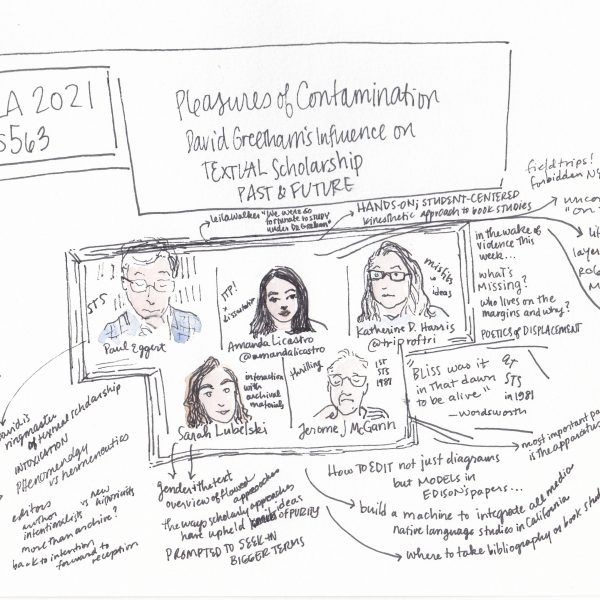 LA 2021
S563
Pleasures of Contamination
David Greetham's Influence on
TEXTUAL Scholarship
PAST & FUTURE
leila walker "We were so
fortunate to study
under Dr. Greetham"
HANDS-ON; STUDENT-CENTERED
kinesthetic approach to book studies
field trips!
forbidden
uncon
"on
in the wake of
violence this
week...
what's
MISSING?
who lives on the
margins and why?
POETICS of DISPLACEMENT
li
layer
ROG
M
STS
Paul Eggert
ITP!
dissertation
Amanda Licastro
@amandalicastro
misfits
ideas
Katherine D. Harris
@triproftri
interaction
with
archival
materials
Sarah Lubelski
thrilling
1ST
STS
1981
Jerome J McGann
"BLISS was it
in that dawn
to be alive"
—Wordsworth
STS
in 1981
david is
ringmaster
of textual scholarship
INTOXICATION
PHENOMENOLOGY
vs hermeneutics
editors
author vs new
intentionalists historicists
more than archive?
back to intention
forward to
reception
gender; the text
overview of flawed approaches
the ways scholarly approaches
have upheld ideas
of PURITY
PROMPTED TO SEEK IN
BIGGER TERMS
HOW TO EDIT not just diagrams
but MODELS in
EDISON'S papers...
most important pa
is the apparatus
build a machine to integrate all media
native language studies in California
where to take bibliography or book stud